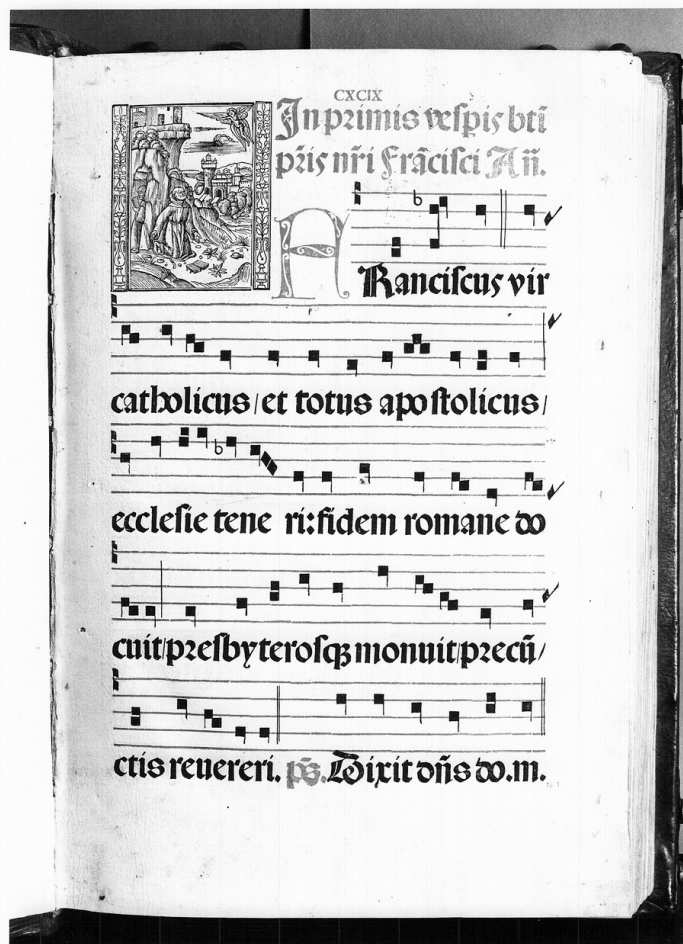 CXCIX
In primis vesꝑis btī
pr̄is nr̄i Frācisci An̄.
FRanciscus vir
catholicus / et totus apo stolicus /
ecclesie tene ri: fidem romane do
cuit / presbyterosqꝫ monuit / precū /
ctis reuereri. ps̄. Dixit dn̄s do. m.